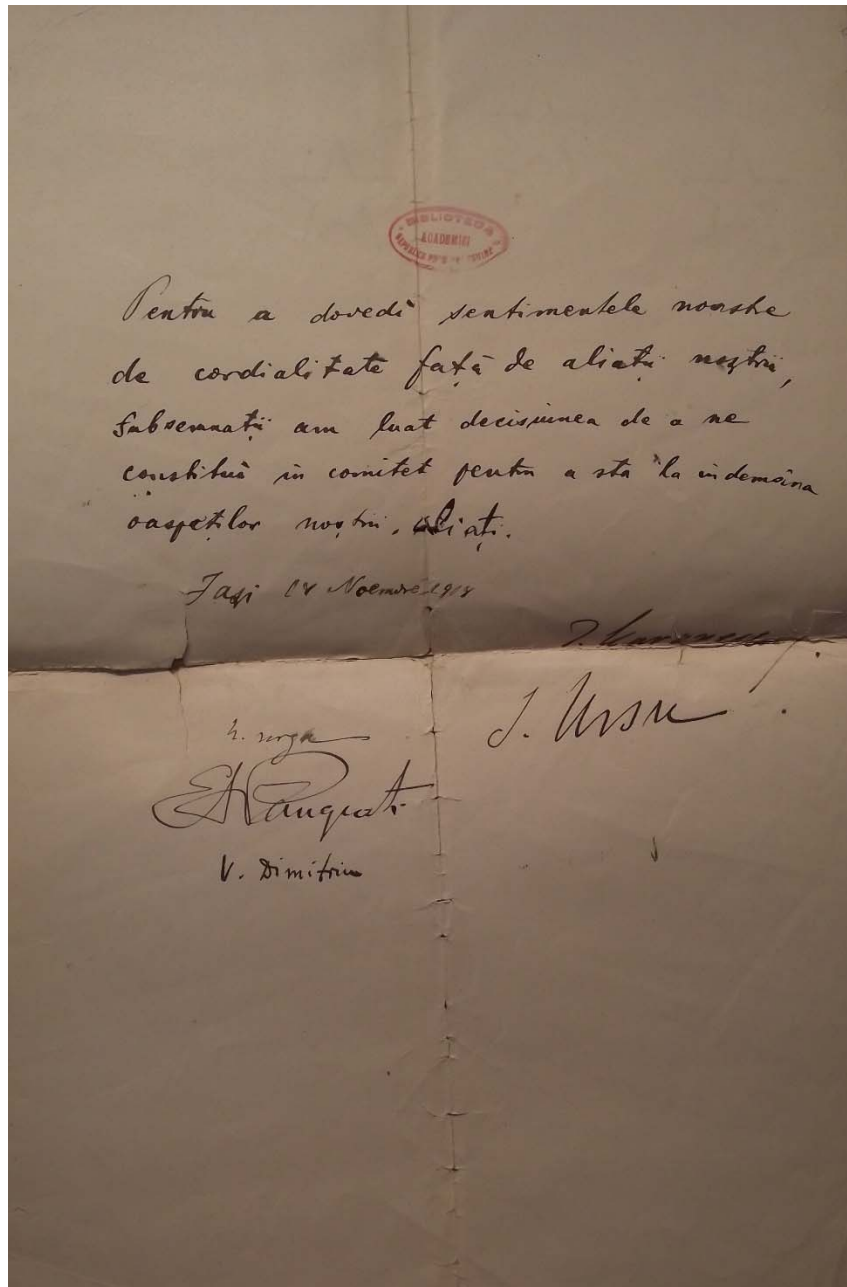 BIBLIOTECA
ACADEMIEI
Pentru a dovedi sentimentele noastre
de cordialitate față de aliații noștrii,
subsemnații am luat decisiunea de a ne
constitui in comitet pentru a sta la indemâna
oaspeților noștrii, aliați.
Iași Noemvrie 1918
N. Iorga
I. Ursu
V. Dimitriu